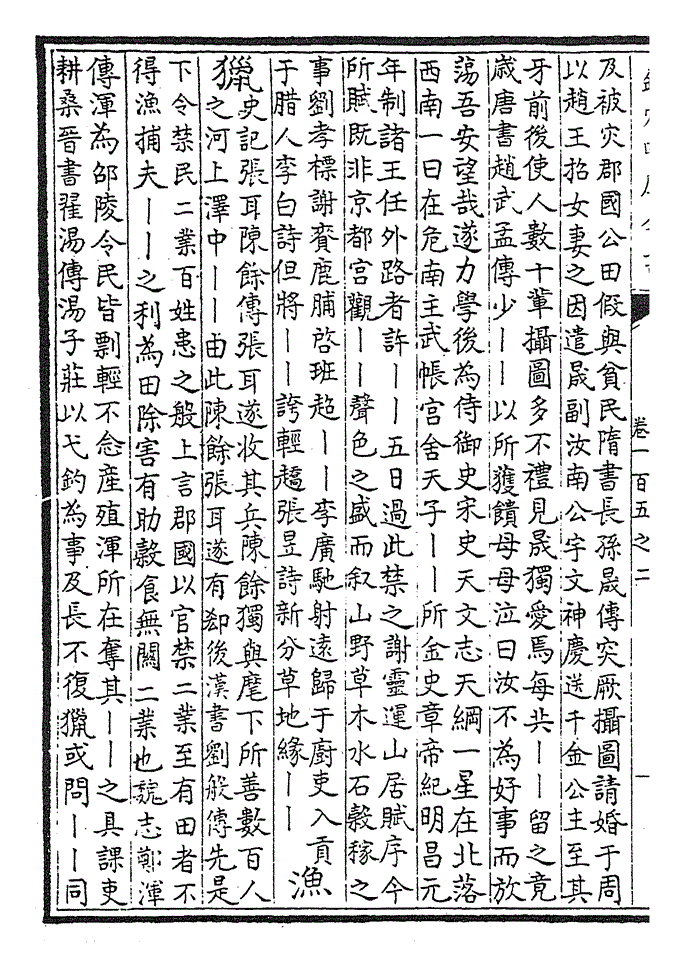 卷一百五之二
及被灾郡國公田假與貧民隋書長孫晟傳突厥攝圖請婚于周
以趙王招女妻之因遣晟副汝南公宇文神慶送千金公主至其
牙前後使人數十輩攝圖多不禮見晟獨愛焉每共丨丨留之竟
歲唐書趙武孟傳少丨丨以所獲饋母母泣曰汝不為好事而放
蕩吾安望哉遂力學後為侍御史宋史天文志天綱一星在北落
西南一曰在危南主武帳宫舍天子丨丨所金史章帝紀明昌元
年制諸王任外路者許丨丨五日過此禁之謝靈運山居賦序今
所賦既非京都宫觀丨丨聲色之盛而叙山野草木水石榖稼之
事劉孝標謝賚鹿脯啓班超丨丨李廣馳射遠歸于廚吏入貢
于腊人李白詩但將丨丨丨誇輕趫張昱詩新分草地縁丨丨
漁
獵
史記張耳陳餘傳張耳遂收其兵陳餘獨與麾下所善數百人
之河上澤中丨丨由此陳餘張耳遂有郤後漢書劉般傳先是
下令禁民二業百姓患之般上言郡國以官禁二業至有田者不
得漁捕夫丨丨之利為田除害有助榖食無關二業也魏志鄭渾
傳渾為邵陵令民皆剽輕不念産殖渾所在奪其丨丨之具課吏
耕桑晉書翟湯傳湯子莊以弋釣為事及長不復獵或問丨丨同